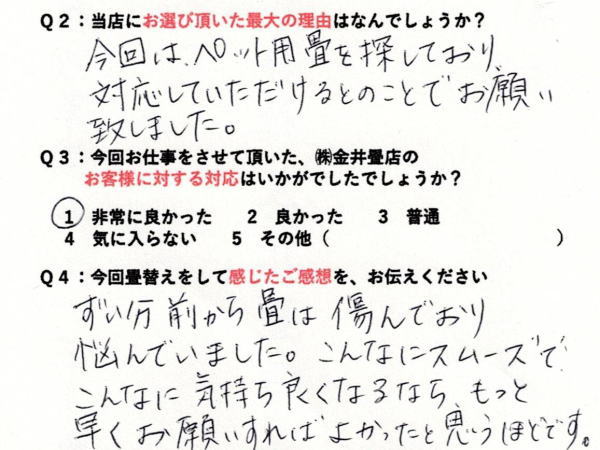 Q2：当店にお選び頂いた最大の理由はなんでしょうか？
今回は、ペット用畳を探しており、
対応していただけるとのことでお願い
致しました。
Q3：今回お仕事をさせて頂いた、㈱金井畳店の
お客様に対する対応はいかがでしたでしょうか？
1 非常に良かった 2 良かった 3 普通
4 気に入らない 5 その他（ ）
Q4：今回畳替えをして感じたご感想を、お伝えください
ずい分前から畳は傷んでおり
悩んでいました。こんなにスムーズで
こんなに気持ち良くなるなら、もっと
早くお願いすればよかったと思うほどです。